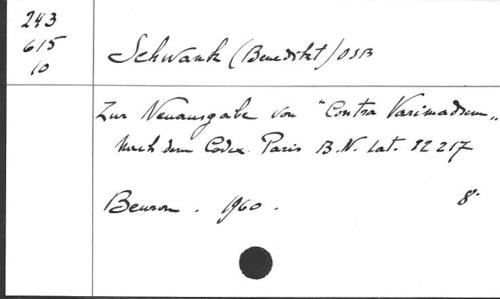 243
615
10
Schwank (Benedikt) OSB
Zur Neuausgabe von "Contra Varimadum"
nach dem Codex Paris B.N. lat. 12217
Beuron . 1960 . 8°